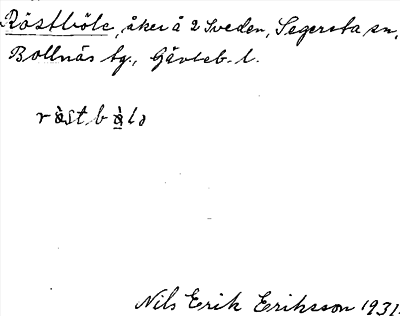 Röstböle, åker å 2 Sveden, Segersta sn,
Bollnäs tg., Gävleb. l.
Nils Erik Eriksson 1931.